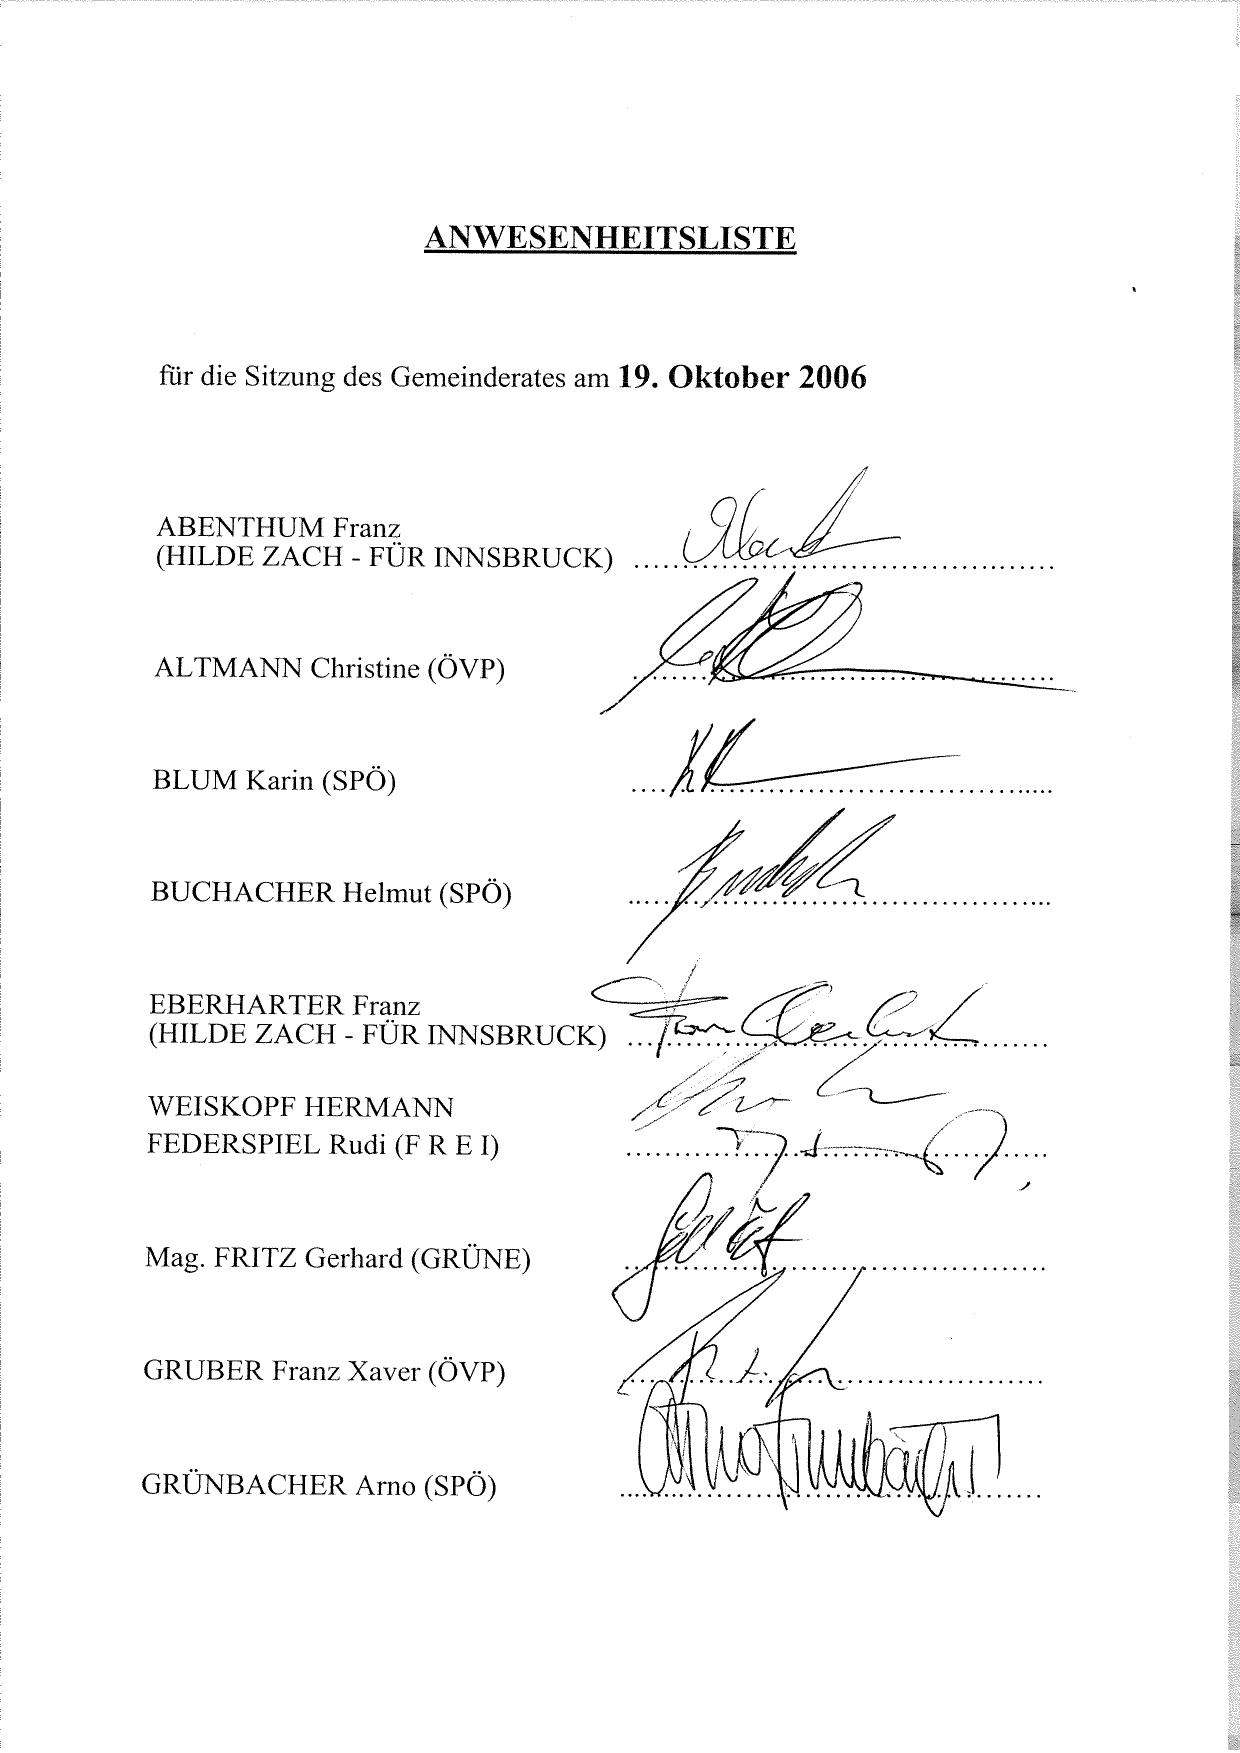 ANWESENHEITSLISTE
für die Sitzung des Gemeinderates am 19. Oktober 2006
ABENTHUM Franz
(HILDE ZACH - FÜR INNSBRUCK)
ALTMANN Christine (ÖVP)
BLUM Karin (SPÖ)
BUCHACHER Helmut (SPÖ)
EBERHARTER Franz
(HILDE ZACH - FÜR INNSBRUCK)
WEISKOPF HERMANN
FEDERSPIEL Rudi (F R E I)
Mag. FRITZ Gerhard (GRÜNE)
GRUBER Franz Xaver (ÖVP)
GRÜNBACHER Arno (SPÖ)